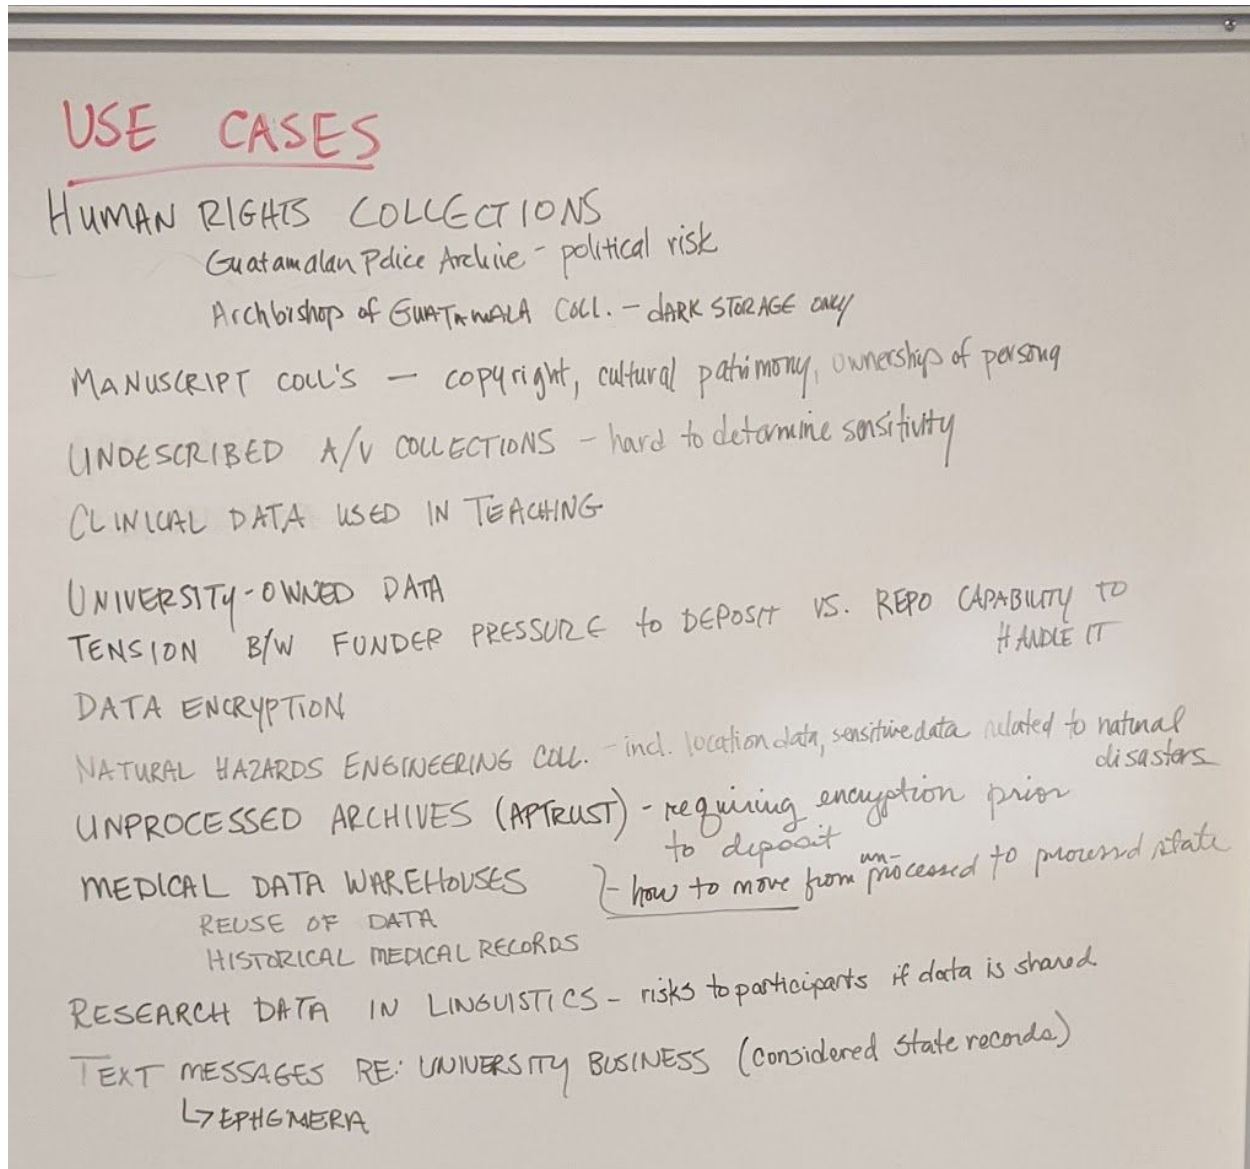 USE CASES
HUMAN RIGHTS COLLECTIONS
Guatamalan Police Archive - political risk
Archbishop of GUATAMALA COLL. - dARK STORAGE ONLY
MANUSCRIPT COLL'S - copyright, cultural patrimony, ownership of persona
UNDESCRIBED A/V COLLECTIONS - hard to determine sensitivity
CLINICAL DATA USED IN TEACHING
UNIVERSITY-OWNED DATA
TENSION B/W FUNDER PRESSURE to DEPOSIT VS. REPO CAPABILITY TO
HANDLE IT
DATA ENCRYPTION
NATURAL HAZARDS ENGINEERING COLL. - incl. location data, sensitive data related to natural
disasters
UNPROCESSED ARCHIVES (APTRUST) - requiring encryption prior
to deposit
MEDICAL DATA WAREHOUSES
- how to move from un-processed to processed state
REUSE OF DATA
HISTORICAL MEDICAL RECORDS
RESEARCH DATA IN LINGUISTICS - risks to participants if data is shared
TEXT MESSAGES RE: UNIVERSITY BUSINESS (considered state records)
↳ EPHEMERA